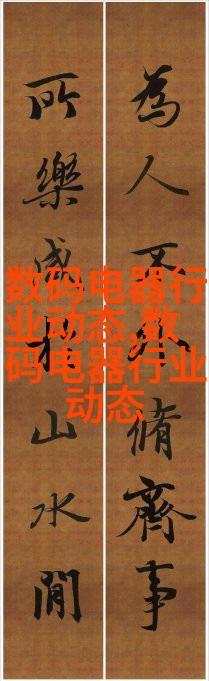 為人不外脩齊事
所樂山水間
数码电器行
业动态,数
码电器行业
动态